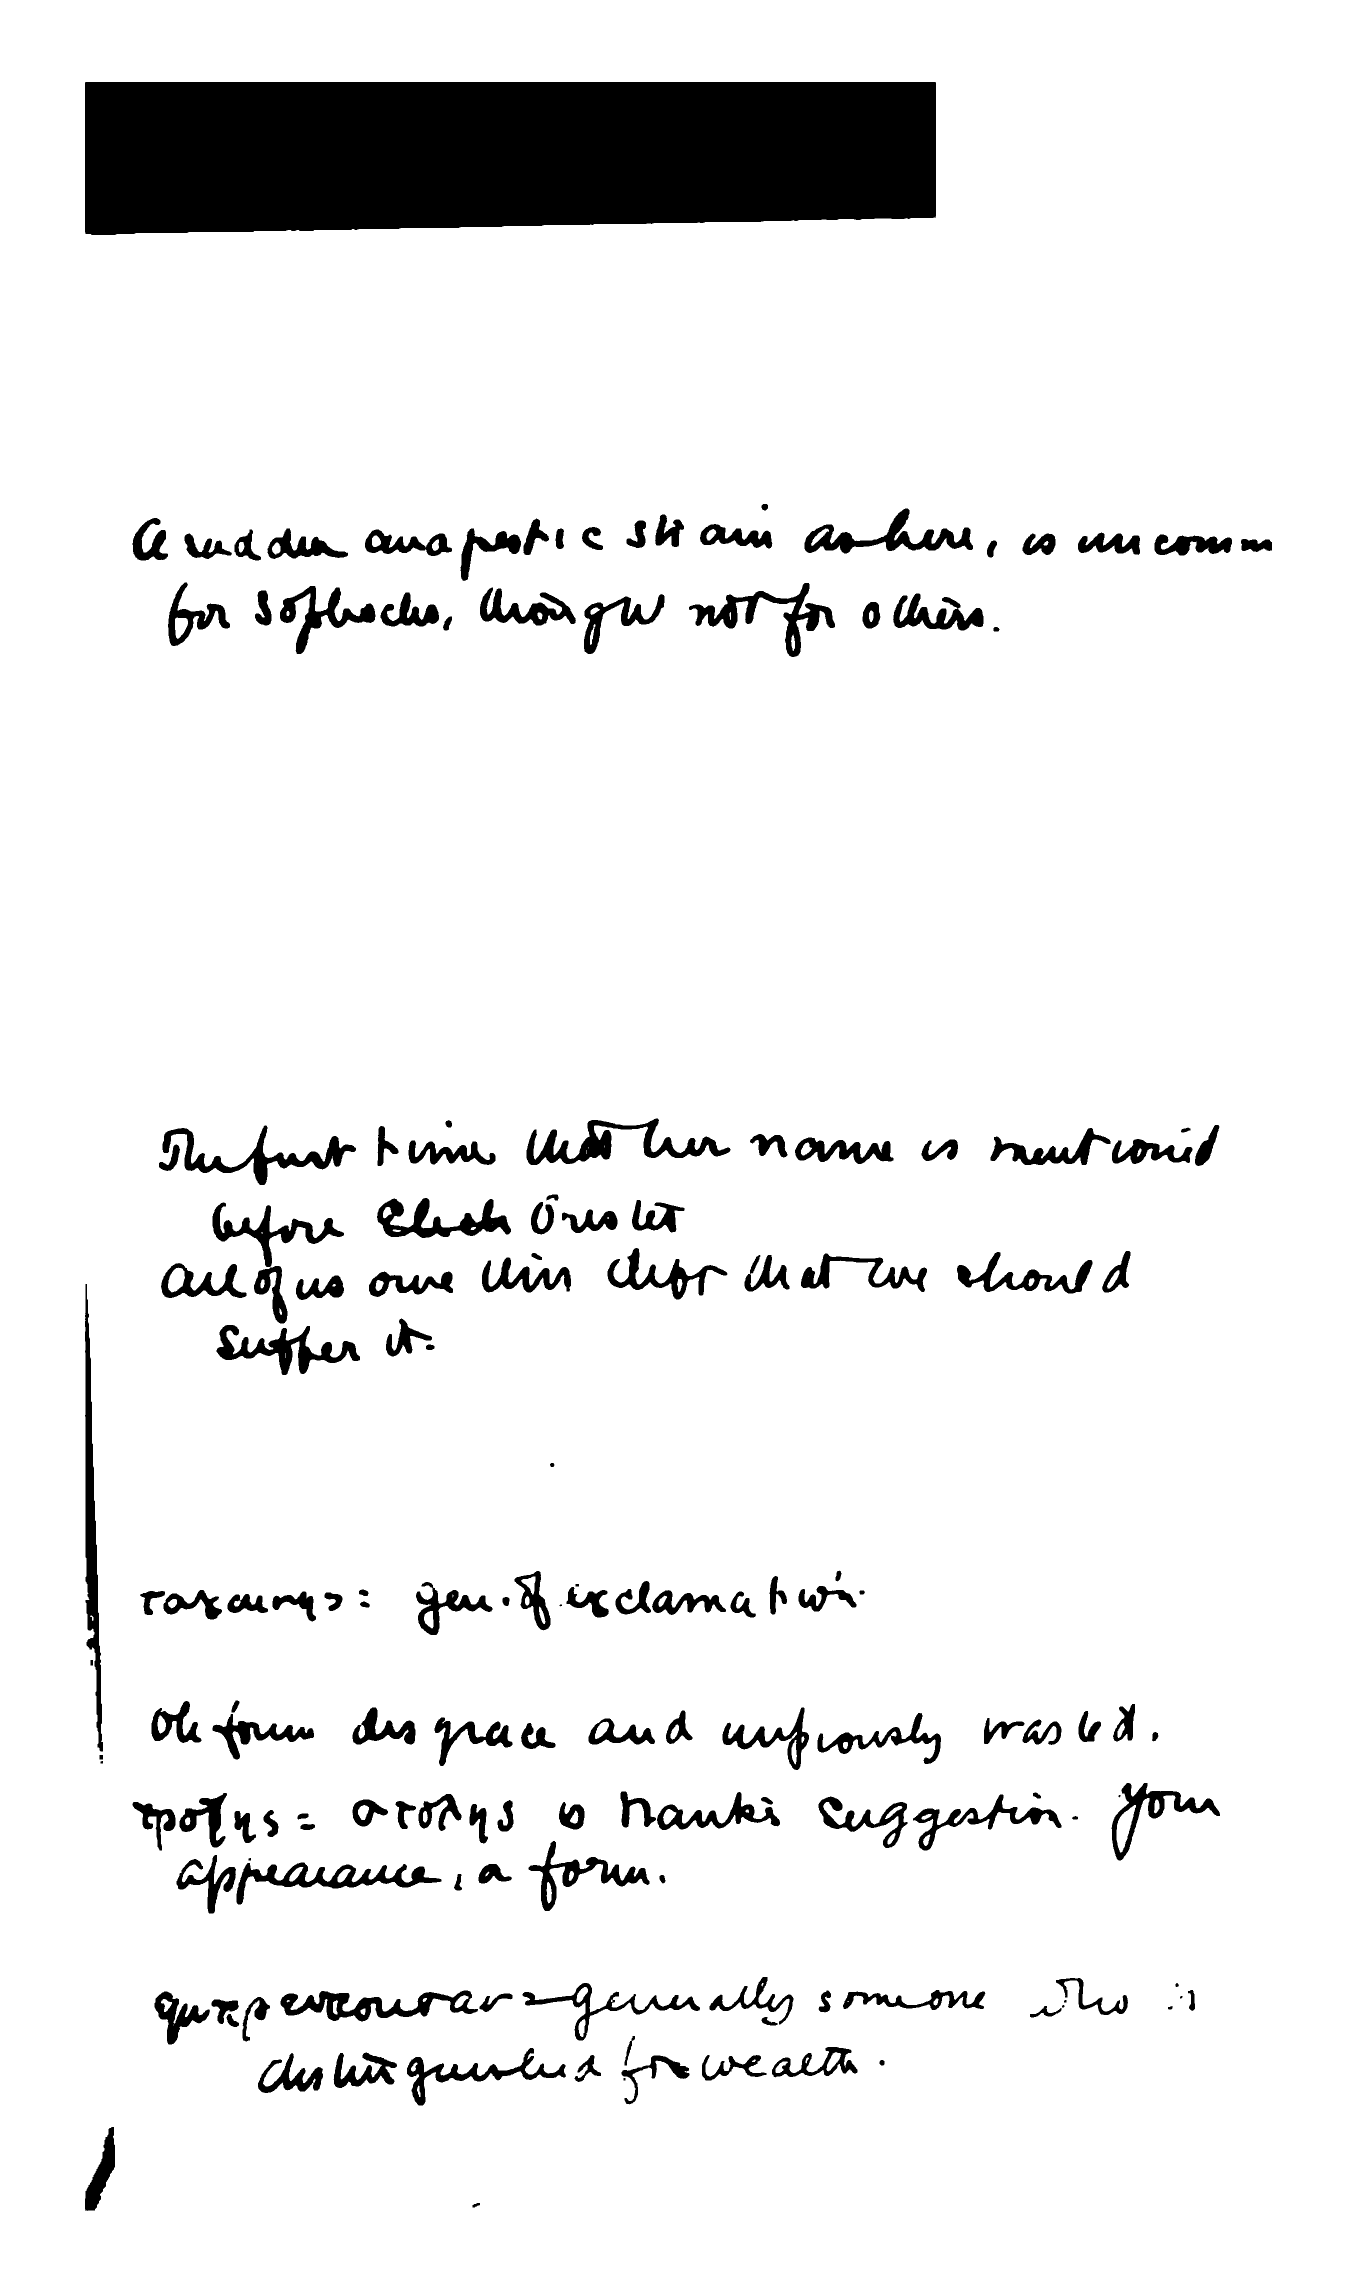 A sudden anapestic strain as here, is uncomm
for Sophocles, though not for others.
The first time that her name is mentioned
before Elect Orestes
All of us owe this debt that we should
suffer it.
ταλαινης = gen. of exclamation.
Oh form disgrace and impiously wasted.
τροφης = στολης is Nauk's suggestion. Your
appearance, a form.
= generally someone who is
distinguished for wealth.